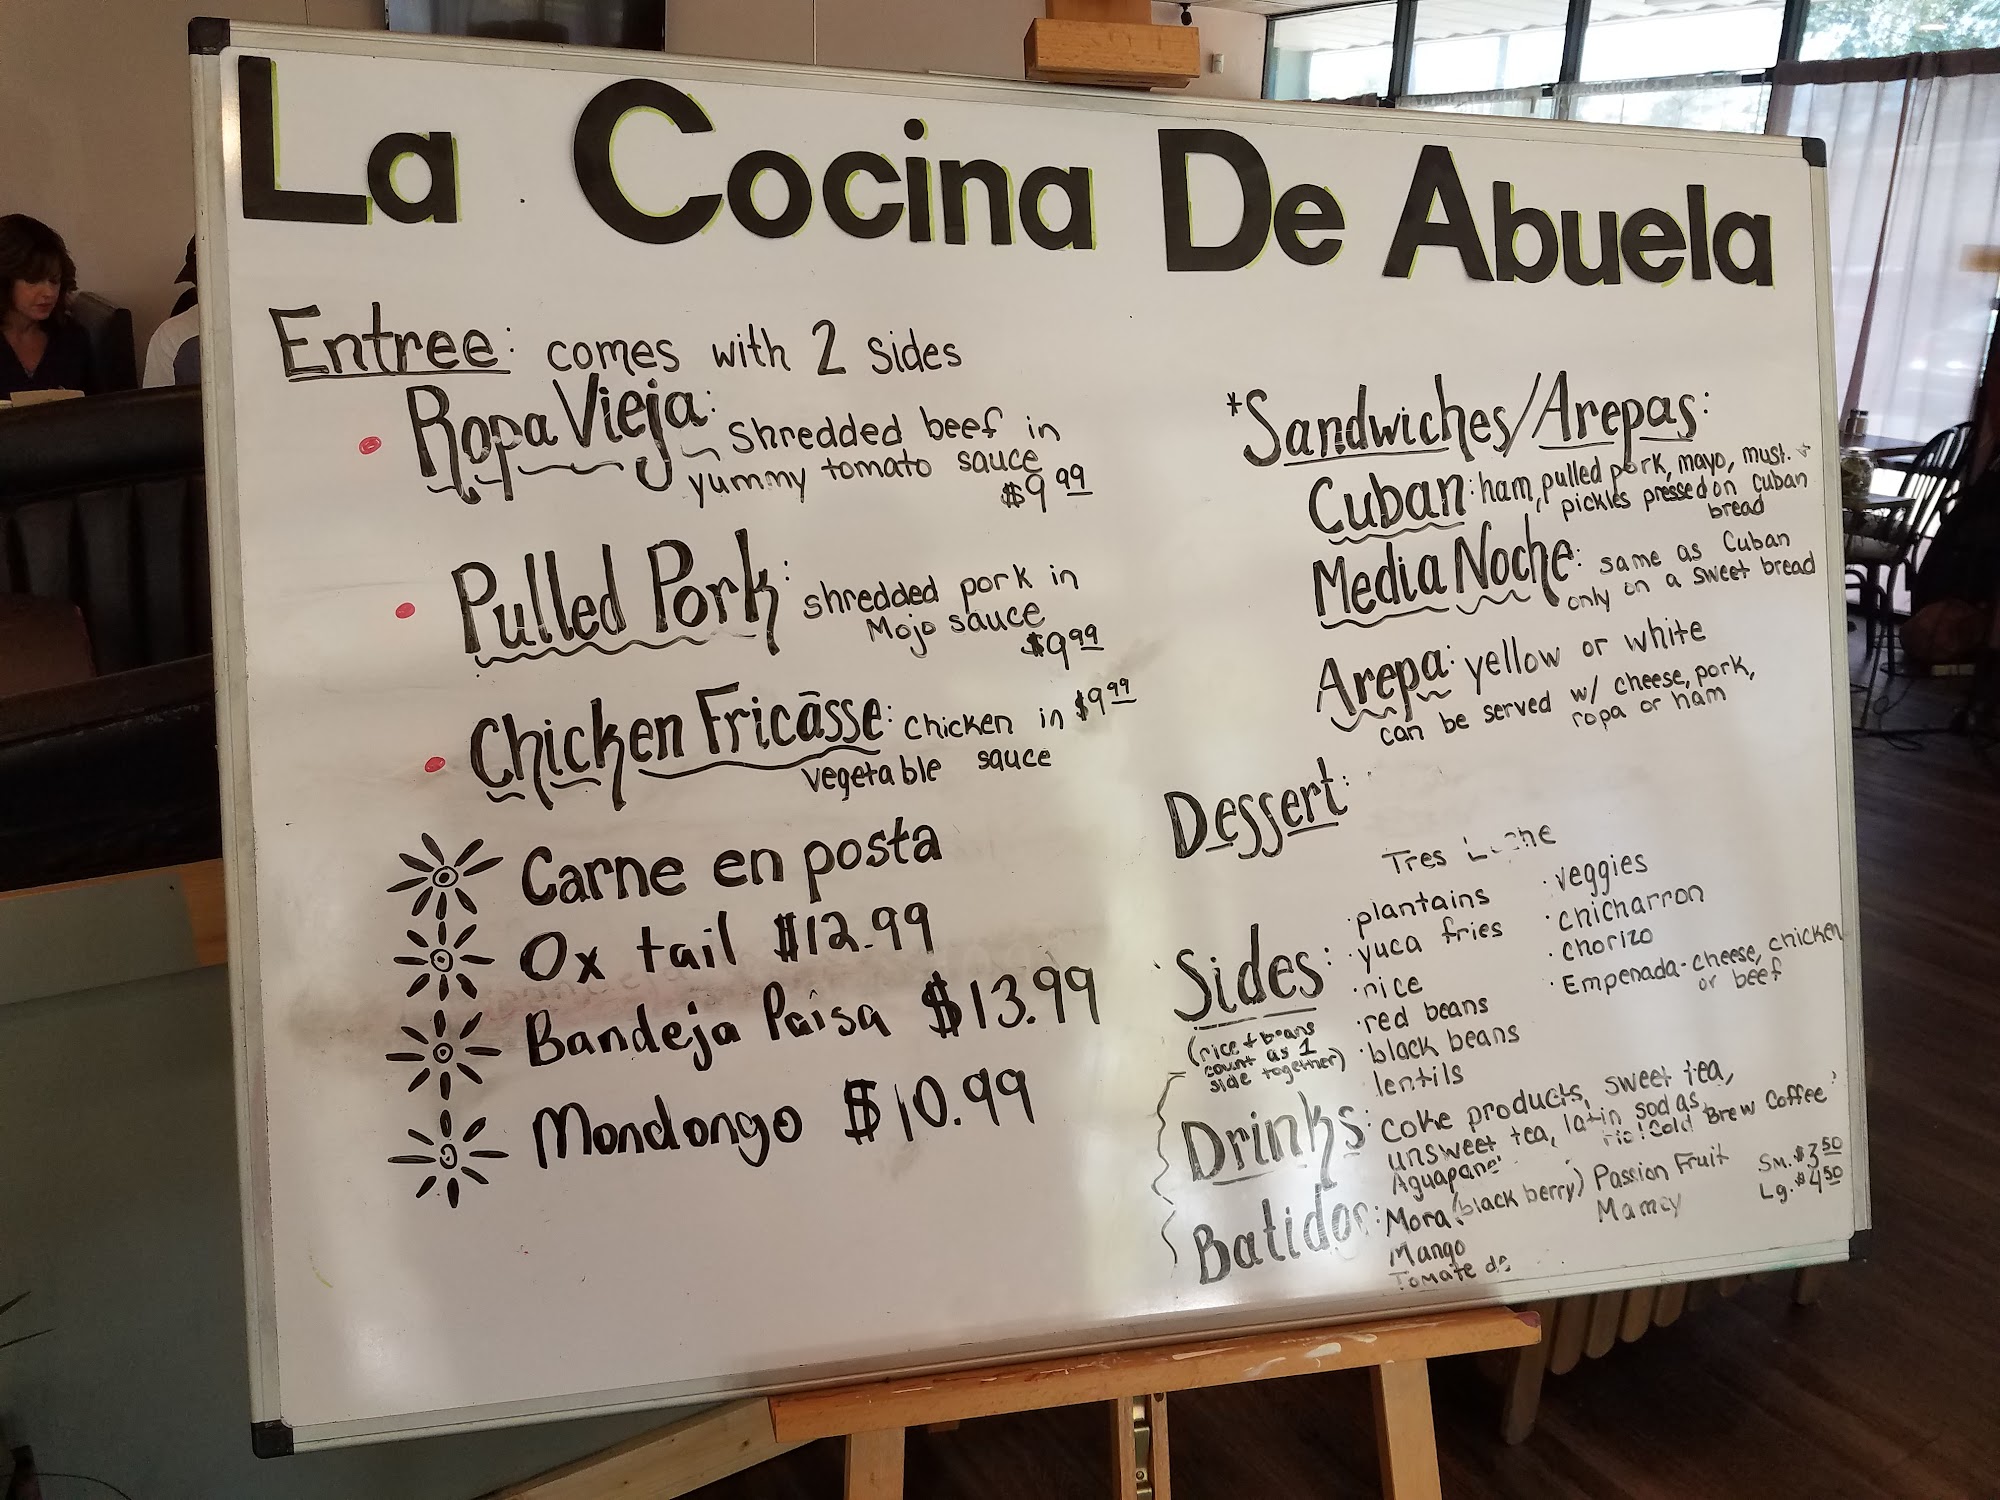 La Cocina De Abuela
Entree: comes with 2 sides
Ropa Vieja: shredded beef in
yummy tomato sauce
$9.99
Pulled Pork: shredded pork in
Mojo sauce
$9.99
Chicken Fricāsse: chicken in $9.99
vegetable sauce
Carne en posta
Ox tail $12.99
Bandeja Paisa $13.99
Mondongo $10.99
*Sandwiches/Arepas:
Cuban: ham, pulled pork, mayo, must. +
pickles pressed on Cuban
bread
Media Noche: same as Cuban
only on a sweet bread
Arepa: yellow or white
can be served w/ cheese, pork,
ropa or ham
Dessert:
Tres
Sides:
(rice + beans
count as 1
side together)
·plantains
·yuca fries
·rice
·red beans
·black beans
lentils
·veggies
·chicharron
·chorizo
·Empenada-cheese, chicken
or beef
Drinks: coke products, sweet tea,
unsweet tea, latin sodas,
Cold Brew Coffee
Batidos: Mora (black berry) Passion Fruit
Mamey
Sm. $3.50
Lg. $4.50
Mango
Tomate de